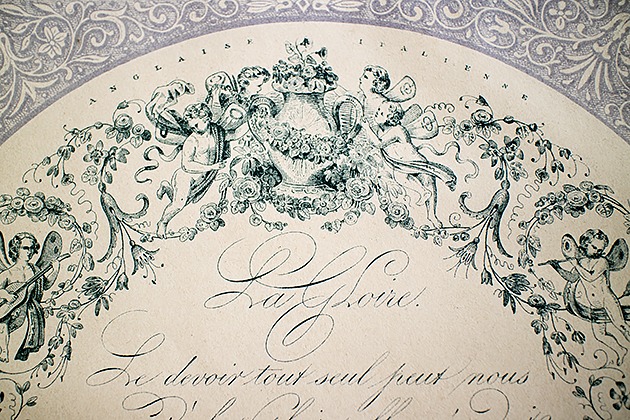 ANGLAISE ITALIENNE
La Gloire.
Le devoir tout seul peut nous